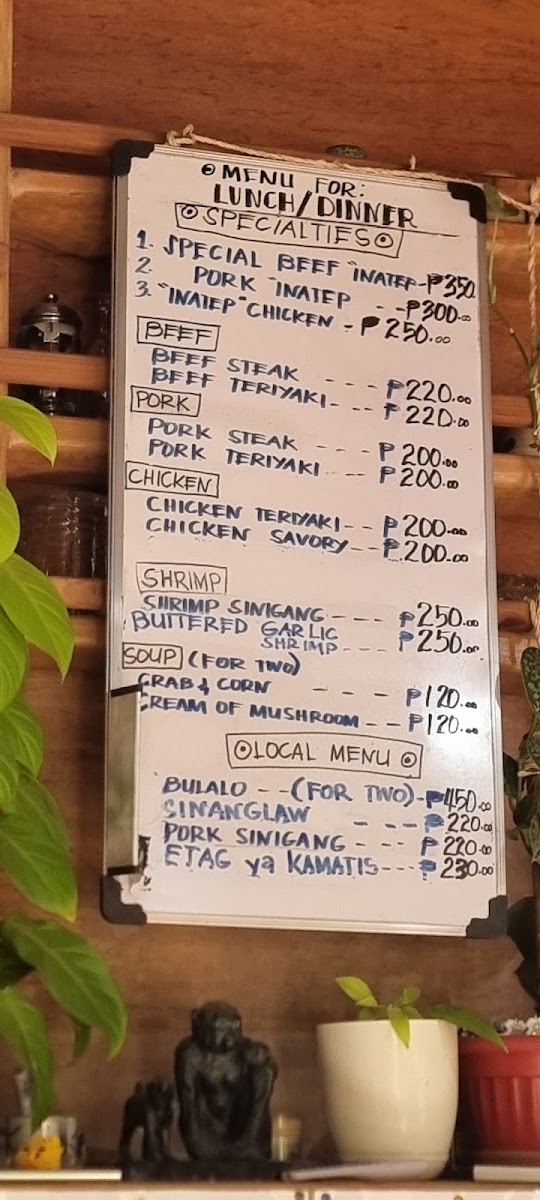 MENU FOR:
LUNCH/DINNER
SPECIALTIES
1. SPECIAL BEEF "INATEP - ₱350
2. PORK "INATEP - - ₱300.00
3. "INATEP" CHICKEN - ₱250.00
BEEF
BEEF STEAK - - - ₱220.00
BEEF TERIYAKI - - - ₱220.00
PORK
PORK STEAK - - - - ₱200.00
PORK TERIYAKI - - - ₱200.00
CHICKEN
CHICKEN TERIYAKI - - - ₱200.00
CHICKEN SAVORY - - - ₱200.00
SHRIMP
SHRIMP SINIGANG - - - - ₱250.00
BUTTERED GARLIC
SHRIMP - - - ₱250.00
SOUP (FOR TWO)
CRAB & CORN - - - - ₱120.00
CREAM OF MUSHROOM - - ₱120.00
LOCAL MENU
BULALO - - (FOR TWO) - ₱450.00
SINANGLAW - - - ₱220.00
PORK SINIGANG - - - ₱220.00
ETAG ya KAMATIS - - - ₱230.00